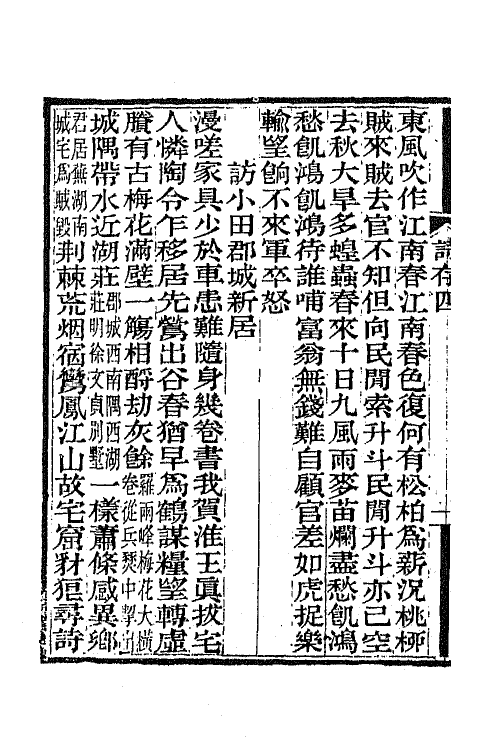 東風吹作江南春江南春色復何有松柏爲薪況桃柳
賊來賊去官不知但向民閒索升斗民閒升斗亦已空
去秋大旱多蝗蟲春來十日九風雨麥苗爛盡愁飢鴻
愁飢鴻飢鴻待誰哺富翁無錢難自顧官差如虎捉樂
輸望餉不來軍卒怒
訪小田郡城新居
漫嗟家具少於車患難隨身幾卷書我賀淮王眞拔宅
人憐陶令乍移居先鶯出谷春猶早爲鶴謀糧望轉虛
賸有古梅花滿壁一觴相酹劫灰餘羅兩峰梅花大橫卷從兵燹中挈出
城隅帶水近湖莊郡城西南隅西湖莊明徐文貞別墅一樣蕭條感異鄉
君居蕪湖南城宅爲賊毀荆棘荒烟宿鸞鳳江山故宅竄豺狼尋詩
詩存四